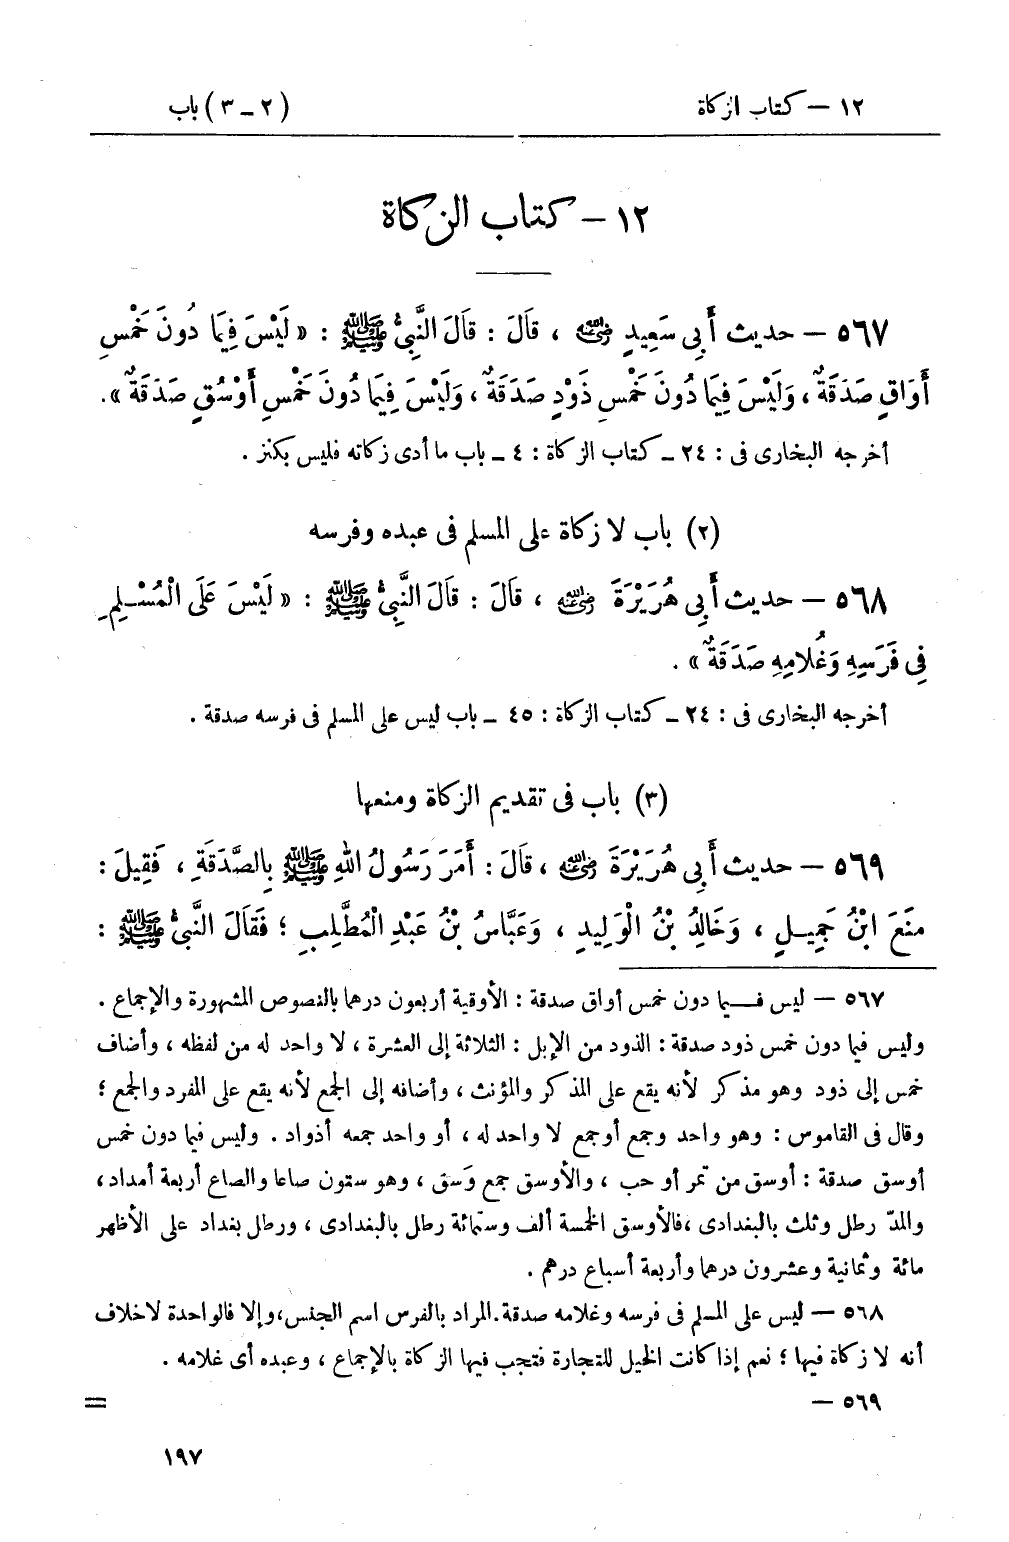 ١٢ – كتاب الزكاة (٢ – ٣) باب
١٢ – كتاب الزكاة
٥٦٧ – حديث أَبِى سَعِيدٍ رضي الله عنه ، قَالَ : قَالَ النَّبِيُّ ﷺ : « لَيْسَ فِيَما دُونَ خَمْسِ
أَوَاقٍ صَدَقَةٌ ، وَلَيْسَ فِيَما دُونَ خَمْسِ ذَوْدٍ صَدَقَةٌ ، وَلَيْسَ فِيَما دُونَ خَمْسِ أَوْسُقٍ صَدَقَةٌ » .
أخرجه البخارى فى : ٢٤ – كتاب الزكاة : ٤ – باب ما أدى زكاته فليس بكنز .
(٢) باب لا زكاة على المسلم فى عبده وفرسه
٥٦٨ – حديث أَبِى هُرَيْرَةَ رضي الله عنه ، قَالَ : قَالَ النَّبِيُّ ﷺ : « لَيْسَ عَلَى الْمُسْلِمِ
فِى فَرَسِهِ وَغُلَامِهِ صَدَقَةٌ » .
أخرجه البخارى فى : ٢٤ – كتاب الزكاة : ٤٥ – باب ليس على المسلم فى فرسه صدقة .
(٣) باب فى تقديم الزكاة ومنعها
٥٦٩ – حديث أَبِى هُرَيْرَةَ رضي الله عنه ، قَالَ : أَمَرَ رَسُولُ اللهِ ﷺ بِالصَّدَقَةِ ، فَقِيلَ :
مَنَعَ ابْنُ جَمِيلٍ ، وَخَالِدُ بْنُ الْوَلِيدِ ، وَعَبَّاسُ بْنُ عَبْدِ الْمُطَّلِبِ ؛ فَقَالَ النَّبِيُّ ﷺ :
٥٦٧ – ليس فيما دون خمس أواق صدقة : الأوقية أربعون درهما بالنصوص المشهورة والإجماع .
وليس فيما دون خمس ذود صدقة : الذود من الإبل : الثلاثة إلى العشرة ، لا واحد له من لفظه ، وأضاف
خمس إلى ذود وهو مذكر لأنه يقع على المذكر والمؤنث ، وأضافه إلى الجمع لأنه يقع على المفرد والجمع ؛
وقال فى القاموس : وهو واحد وجمع أوجمع لا واحد له ، أو واحد جمعه أذواد . وليس فيما دون خمس
أوسق صدقة : أوسق من تمر أو حب ، والأوسق جمع وَسق ، وهو ستون صاعا والصاع أربعة أمداد ،
والمدّ رطل وثلث بالبغدادى ، فالأوسق الخمسة ألف وستمائة رطل بالبغدادى ، ورطل بغداد على الأظهر
مائة وثمانية وعشرون درهما وأربعة أسباع درهم .
٥٦٨ – ليس على المسلم فى فرسه وغلامه صدقة. المراد بالفرس اسم الجنس، وإلا فالواحدة لاخلاف
أنه لا زكاة فيها ؛ نعم إذا كانت الخيل للتجارة فتجب فيها الزكاة بالإجماع ، وعبده أى غلامه .
٥٦٩ – =
١٩٧